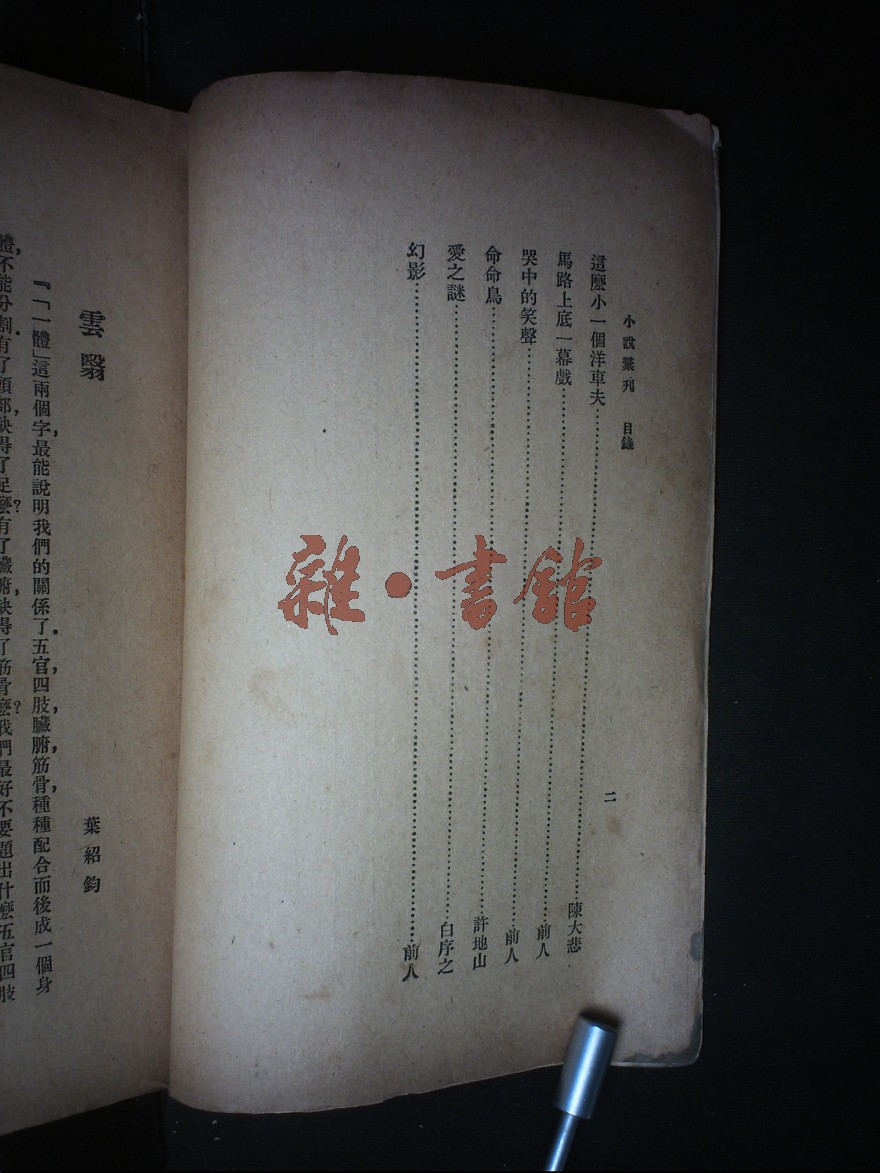 小說彙刊　目錄
二
這麼小一個洋車夫……陳大悲
馬路上底一幕戲……前人
哭中的笑聲……前人
命命鳥……許地山
愛之謎……白序之
幻影……前人
雜·書館
雲翳
葉紹鈞
『「一體」這兩個字，最能說明我們的關係了。五官，四肢，臟腑，筋骨，種種配合而後成一個身
體，不能分割。有了頭部，缺得了足麼？有了臟腑，缺得了筋骨麼？我們最好不要題出什麼五官四肢